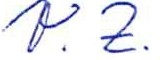 V. Z.